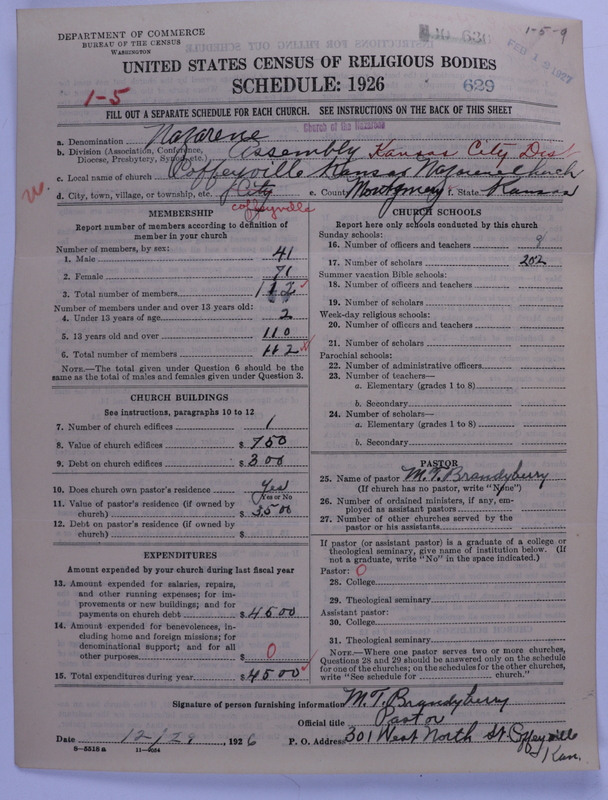 DEPARTMENT OF COMMERCE
BUREAU OF THE CENSUS
WASHINGTON
1-5-9
FEB 1 2 1927
UNITED STATES CENSUS OF RELIGIOUS BODIES
SCHEDULE: 1926
629
1-5
FILL OUT A SEPARATE SCHEDULE FOR EACH CHURCH. SEE INSTRUCTIONS ON THE BACK OF THIS SHEET
Church of the Nazarene
a. Denomination Nazarene
b. Division (Association, Conference, Diocese, Presbytery, Synod, etc.) Assembly Kansas City Dist
c. Local name of church Coffeyville Kansas Nazarene Church
d. City, town, village, or township, etc. City e. County Montgomery f. State Kansas
Coffeyville
MEMBERSHIP
Report number of members according to definition of member in your church
Number of members, by sex:
1. Male 41
2. Female 71
3. Total number of members 112
Number of members under and over 13 years old:
4. Under 13 years of age 2
5. 13 years old and over 110
6. Total number of members 112
NOTE.—The total given under Question 6 should be the same as the total of males and females given under Question 3.
CHURCH BUILDINGS
See instructions, paragraphs 10 to 12
7. Number of church edifices 1
8. Value of church edifices $ 750
9. Debt on church edifices $ 300
10. Does church own pastor's residence Yes
(Yes or No)
11. Value of pastor's residence (if owned by church) $ 3500
12. Debt on pastor's residence (if owned by church) $
EXPENDITURES
Amount expended by your church during last fiscal year
13. Amount expended for salaries, repairs, and other running expenses; for improvements or new buildings; and for payments on church debt $ 4500
14. Amount expended for benevolences, including home and foreign missions; for denominational support; and for all other purposes $ 0
15. Total expenditures during year $ 4500
CHURCH SCHOOLS
Report here only schools conducted by this church
Sunday schools:
16. Number of officers and teachers 9
17. Number of scholars 202
Summer vacation Bible schools:
18. Number of officers and teachers
19. Number of scholars
Week-day religious schools:
20. Number of officers and teachers
21. Number of scholars
Parochial schools:
22. Number of administrative officers
23. Number of teachers—
a. Elementary (grades 1 to 8)
b. Secondary
24. Number of scholars—
a. Elementary (grades 1 to 8)
b. Secondary
PASTOR
25. Name of pastor M. T. Brandyberry
(If church has no pastor, write "None")
26. Number of ordained ministers, if any, employed as assistant pastors
27. Number of other churches served by the pastor or his assistants
If pastor (or assistant pastor) is a graduate of a college or theological seminary, give name of institution below. (If not a graduate, write "No" in the space indicated.)
Pastor: 0
28. College
29. Theological seminary
Assistant pastor:
30. College
31. Theological seminary
NOTE.—Where one pastor serves two or more churches, Questions 28 and 29 should be answered only on the schedule for one of the churches; on the schedules for the other churches, write "See schedule for church."
Signature of person furnishing information M. T. Brandyberry
Official title Pastor
Date 12/29, 1926 P. O. Address 301 West North St. Coffeyville Kan.
8—5518 a 11—9034